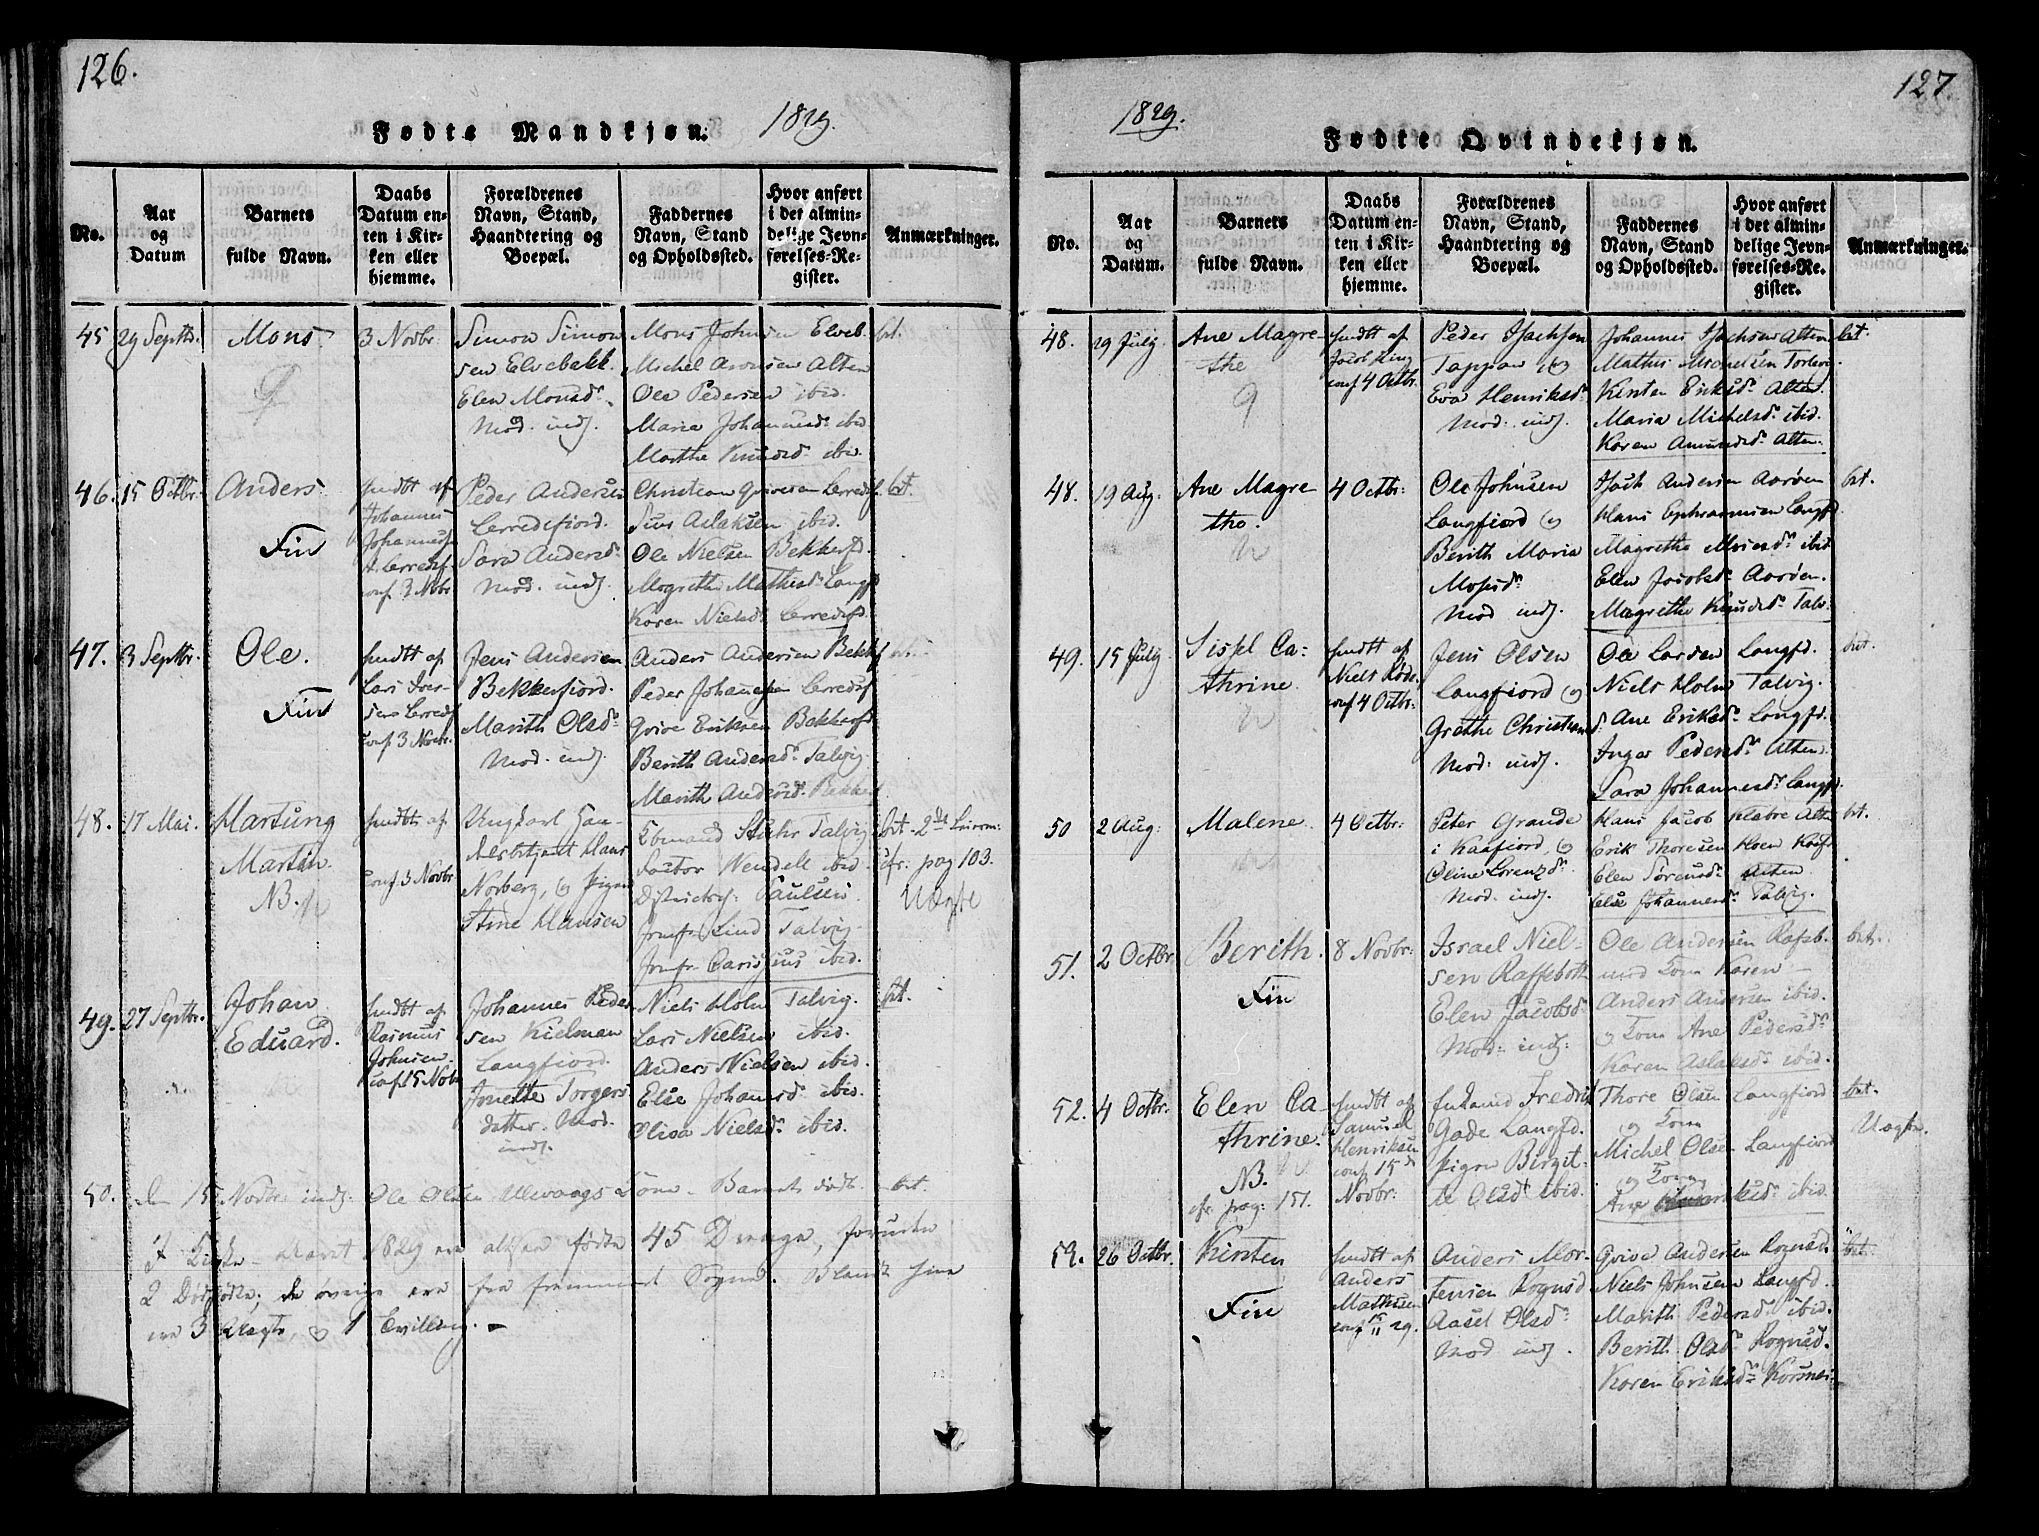 126.
Fødte Mandkjøn.
1829.
No.
Aar
og
Datum
Barnets
fulde Navn.
Daabs
Datum en-
ten i Kir-
ken eller
hjemme.
Forældrenes
Navn, Stand,
Haandtering og
Boepæl.
Faddernes
Navn, Stand
og Opholdssted.
Hvor anført
i det almin-
delige Jevn-
førelses-Re-
gister.
Anmærkninger.
45
29 Septbr.
Mons
3 Novbr.
Simon Simon
sen Elvebakk.
Elen Monsd.
Mod. indj.
Mons Johnsen Elveb.
Michel Aronsen Alten
Ole Pedersen ibid.
Maria Johannesd. ibid.
Marthe Knudsd. ibid.
bt.
46.
15 Octbr.
Anders.
Fin
hmdt af
Johannes
Johannesen
conf. 3 Nobr
Peder Andersen
Lerredsfiord.
Sara Andersd.
Mod. indj.
Christian Grivesen Lerredsf.
Siver Aslaksen ibid.
Ole Nielsen Bekkerfd.
Magrethe Mathisd. Langfd
Karen Nielsd. Lerredsfd.
bt.
47.
3 Septbr.
Ole.
Fin
hmdt af
Lars Iver-
sen Lerredsf
conf 3 Novbr.
Jens Andersen
Bekkerfiord.
Marith Olsd.
Mod. indj.
Anders Andersen Bekkf
Peder Johannesen Lerredsf
Grive Eriksen Bekkerfd.
Berith Andersd. Talvig.
Marith Andersd. Bekkerf.
bt.
48.
17 Mai.
Hartung
Martin.
NB.
hmdt af
conf 3 Novbr
Ungkarl Han-
delsbetjent Hans
Norberg, og Pigen
Stine Hansen
Edmund Stuhr Talvig
Factor Wendelb. ibid.
Districtsch. Paulsen.
Jomfr. Lind Talvig.
Jomfr. Carissius ibid.
bt. 2de Leierm:
cfr. pag 103.
Uægte
49.
27 Septbr.
Johan
Eduard.
hmdt af
Rasmus
Johnsen.
conf 15 Nobr
Johannes Peder
sen Kielman
Langfiord.
Jonette Torgers
datter. Mod.
indj.
Niels Holm Talvig.
Lars Nielsen ibid.
Anders Nielsen ibid.
Else Johansd. ibid.
Olisa Nielsd. ibid.
bt.
50.
den 15. Novbr. indj. Ole Olsen Ulevaags Kone. Barnet dødt. bt.
I Kirke-Aaret 1829 ere altsaa fødte 45 Drenge, foruden
2 Dødfødte; de øvrige ere fra fremmed Sogne. Blandt hine
ere 3 Uægte, og 1 Tvilling.
127.
1829.
Fødte Qvindekjøn.
No.
Aar
og
Datum.
Barnets
fulde Navn.
Daabs
Datum en-
ten i Kir-
ken eller
hjemme.
Forældrenes
Navn, Stand,
Haandtering og
Boepæl.
Faddernes
Navn, Stand
og Opholdssted.
Hvor anført
i det almin-
delige Jevn-
førelses-Re-
gister.
Anmærkninger.
48.
29 July.
Ane Magre-
the
hmdt af
Jacob Ling
conf 4 Octbr.
Peder Isachsen
Tappen, og
Eva Henriksd.
Mod. indj.
Johannes Isachsen Alten
Mathis Monsen
Kirsten Eriksd. Alten.
Maria Michelsd. ibid.
Karen Amundsd. Alten.
bt.
48.
19 Aug:
Ane Magre
the.
4 Octbr:
Ole Johnsen
Langfiord og
Berith Maria
Mosesd.
Mod indj.
Isach Andersen Aarøen
Hans Ephraimsen Langfd
Magrethe Monsd. ibid
Elen Jacobsd. Aarøen.
Magrethe Knudsd. Talv.
bt.
49.
15 July
Sissel Ca-
thrine.
hmdt af
Niels Røde
conf 4 Octbr:
Jens Olsen
Langfiord og
Grethe Christiansd.
Mod: indj.
Ole Larsen Langfd.
Niels Holm Talvig.
Ane Eriksd. Langfd.
Inger Pedersd. Alten
Sara Johannesd. Langfd
bt.
50
2 Aug:
Malene.
4 Octbr:
Peter Grande
i Kaafiord, og
Oline Lorenzd.
Mod. indj.
Hans Jacob Klæboe Alten
Erik Thoresen Hoen Kaaf
Elen Sørensd. Alten
Else Johannesd. Talvig.
bt.
51.
2 Octbr
Berith.
Fin
8 Novbr:
Israel Niel-
sen Rafsbotn
Elen Jacobsd
Mod: indj:
Ole Andersen Rafsb.
med Kone Karen
Anders Andersen ibid.
og Kone Ane Pedersd.
Karen Aslaksd. ibid.
bt.
52.
4 Octbr.
Elen Ca-
thrine.
NB.
cfr pag: 151.
hmdt af
Samuel
Henriksen
conf 15de
Novbr:
Enkemand Fredrik
Gade Langfd.
Pigen Birgit-
te Olsd ibid.
Thore Olsen Langfiord
og Kone
Michel Olsen Langfiord
og Kone
bt.
Uægte.
59.
26 Octbr.
Kirsten
Fin
hmdt af
Anders
Mathisen
conf 15/11 29.
Anders Mor-
tensen Rognsd
Aasel Olsd.
Mod indj.
Grive Andersen Rognsd.
Niels Johnsen Langfd.
Marith Pedersd. ibid.
Berith Olsd. Rognsd.
Karen Eriksd. Korsnes
bt.